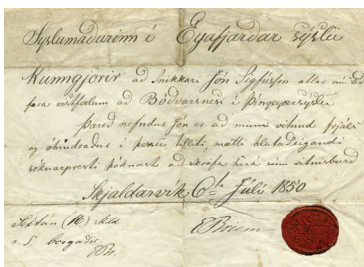 Syslumadurinn i Eyafjardar syslu
Kunngjörir ad Snikkari Jón Sigfússon ætlar nú ad
fara vistferlum ad Bödvarsnesi i Þingeyarsyslu
Þared nefndur Jón er ad minni vitund frjáls
og óhindradur i þessu tilliti, mætti hlutadeigandi
sóknarprestr þóknast ad skrifa hans vitnisburd
Skjaldarvik 6ta Júli 1850
EBriem
borgadur